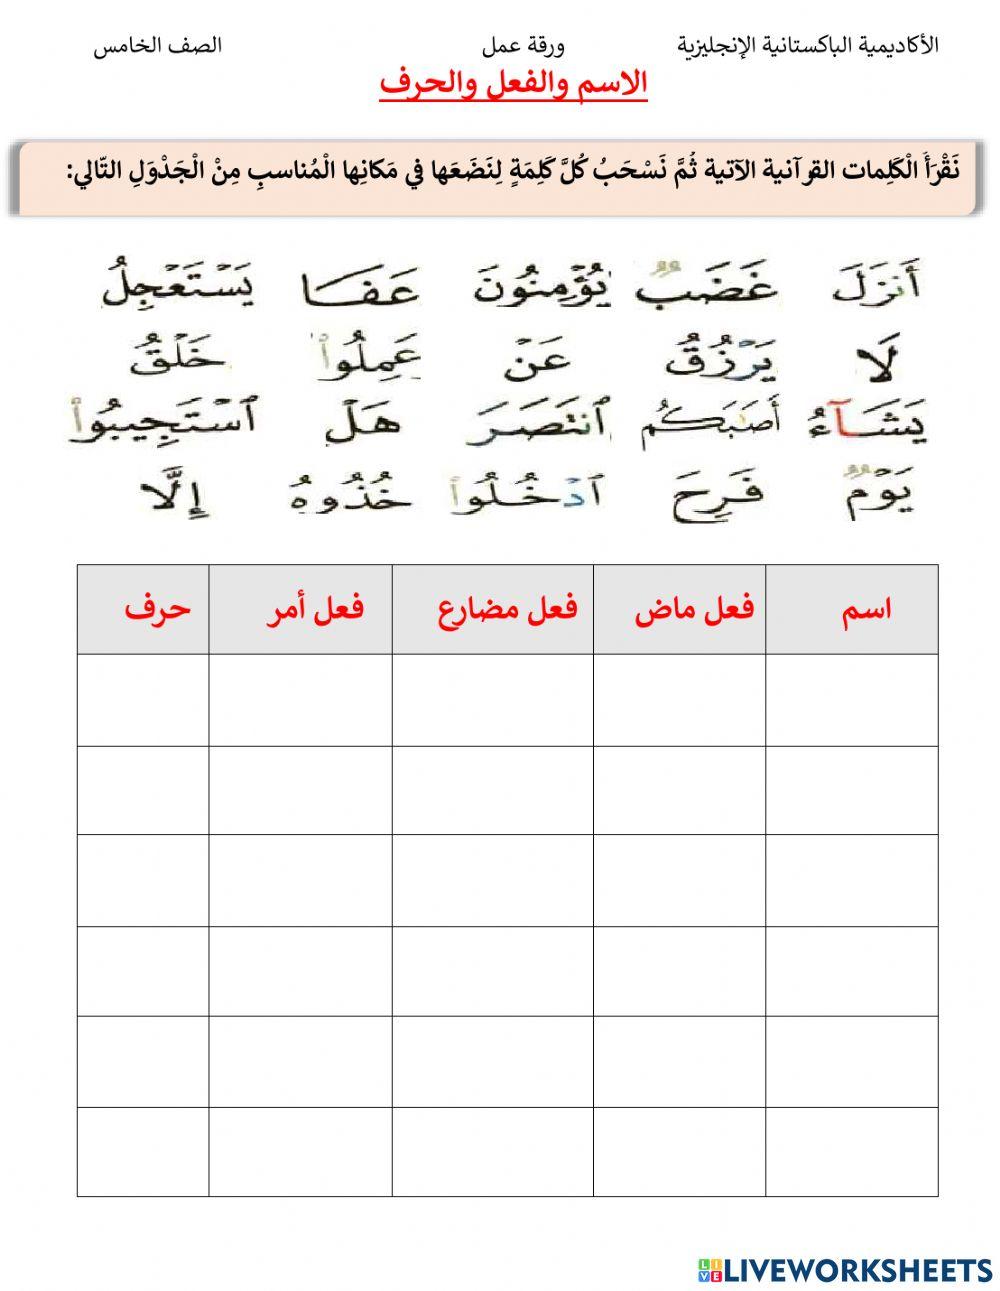 الأكاديمية الباكستانية الإنجليزية ورقة عمل الصف الخامس
الاسم والفعل والحرف
نَقْرَأَ الْكَلِمات القرآنية الآتية ثُمَّ نَسْحَبُ كُلَّ كَلِمَةٍ لِنَضَعَها في مَكانِها الْمُناسبِ مِنْ الْجَدْوَلِ التّالي:
أَنزَلَ غَضَبٌ يُؤْمِنُونَ عَفَا يَسْتَعْجِلُ
لَا يَرْزُقُ عَنْ عَمِلُوا۟ خَلْقُ
يَشَآءُ أَصَٰبَكُم ٱنتَصَرَ هَلْ ٱسْتَجِيبُوا۟
يَوْمٌ فَرِحَ ٱدْخُلُوا۟ خُذُوهُ إِلَّا
اسم فعل ماض فعل مضارع فعل أمر حرف
LIVEWORKSHEETS